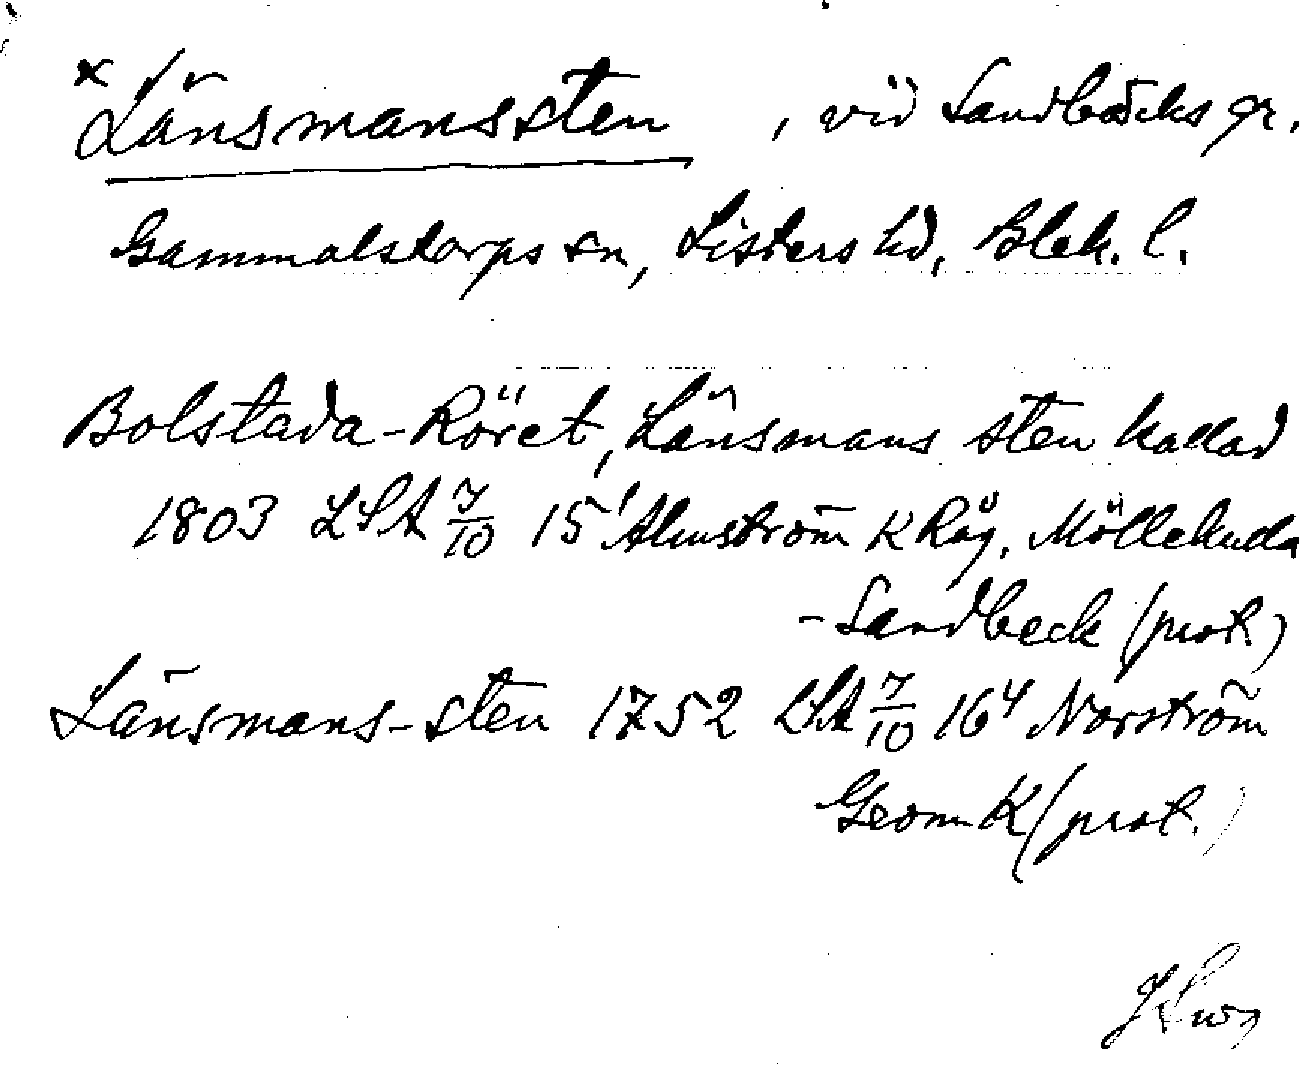 x Länsmanssten , vid Sandbäcks gr.
Gammalstorps sn, Listers hd, Blek. l.
Bolstada-Röret, Länsmans sten kallad
1803 LSA 7/10 15' Almström K Råg. Möllekulla
- Sandbeck (prot.)
Länsmans-sten 1752 LSA 7/10 16⁴ Norström
Geom K (prot.)